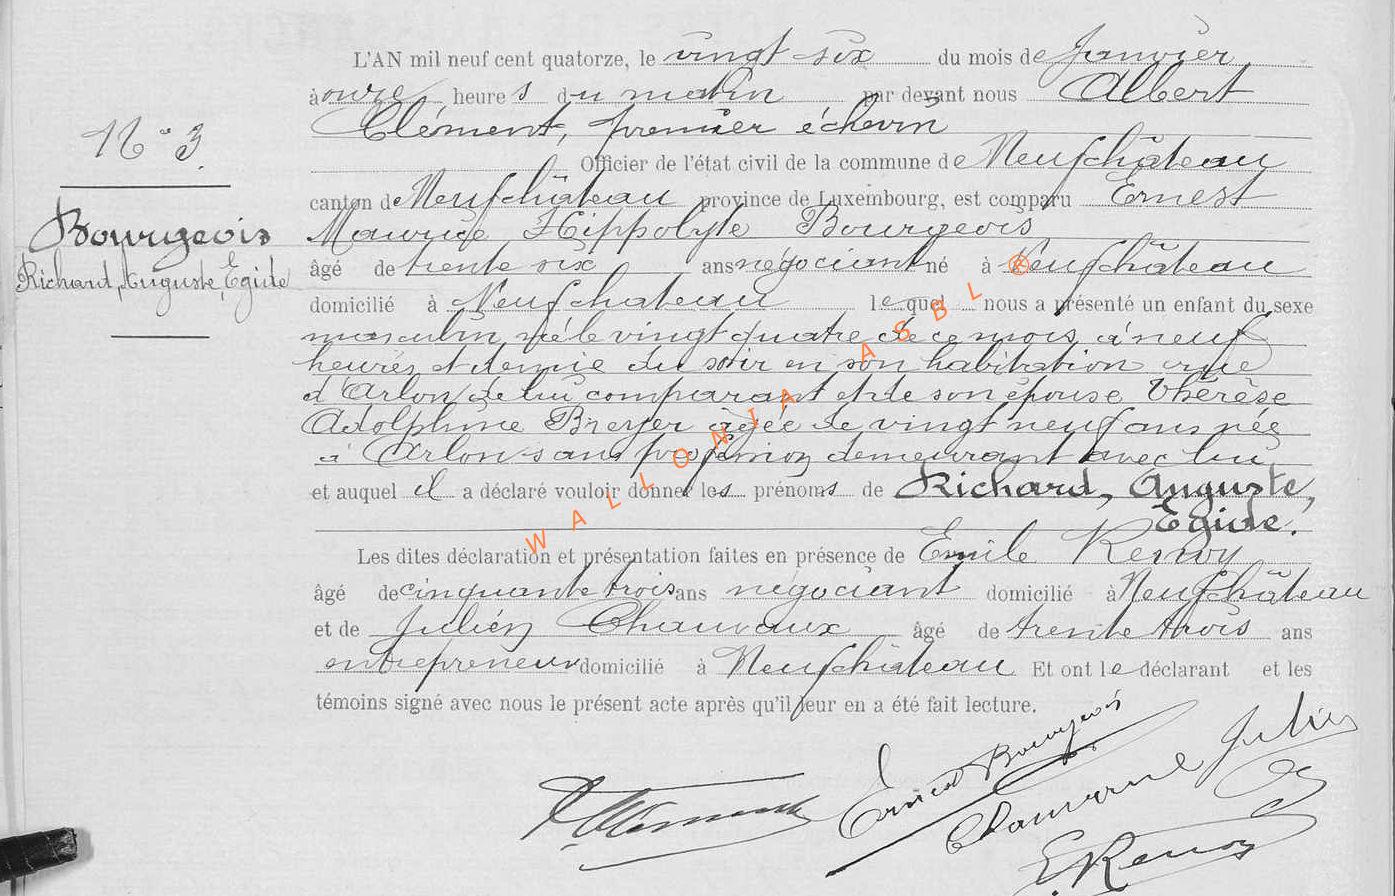 N° 3.
Bourgeois
Richard, Auguste, Egide
L'AN mil neuf cent quatorze, le vingt six du mois de Janvier
à onze heures du matin par devant nous Albert
Clément, premier échevin
Officier de l'état civil de la commune de Neufchâteau
canton de Neufchâteau province de Luxembourg, est comparu Ernest
Maurice Hippolyte Bourgeois
âgé de trente six ans négociant né à Neufchâteau
domicilié à Neufchateau lequel nous a présenté un enfant du sexe
masculin né le vingt quatre de ce mois, à neuf
heures et demie du soir en son habitation rue
d'Arlon, de lui comparant et de son épouse Thérèse
Adolphine Breyer âgée de vingt neuf ans née
à Arlon sans profession demeurant avec lui
et auquel il a déclaré vouloir donner les prénoms de Richard, Auguste,
Egide.
Les dites déclaration et présentation faites en présence de Emile Renoy
âgé de cinquante trois ans négociant domicilié à Neufchâteau
et de Julien Chauvaux âgé de trente trois ans
entrepreneur domicilié à Neufchâteau Et ont le déclarant et les
témoins signé avec nous le présent acte après qu'il leur en a été fait lecture.
WALLONIA ASBL ®
Ernest Bourgeois
Julien
E. Renoy